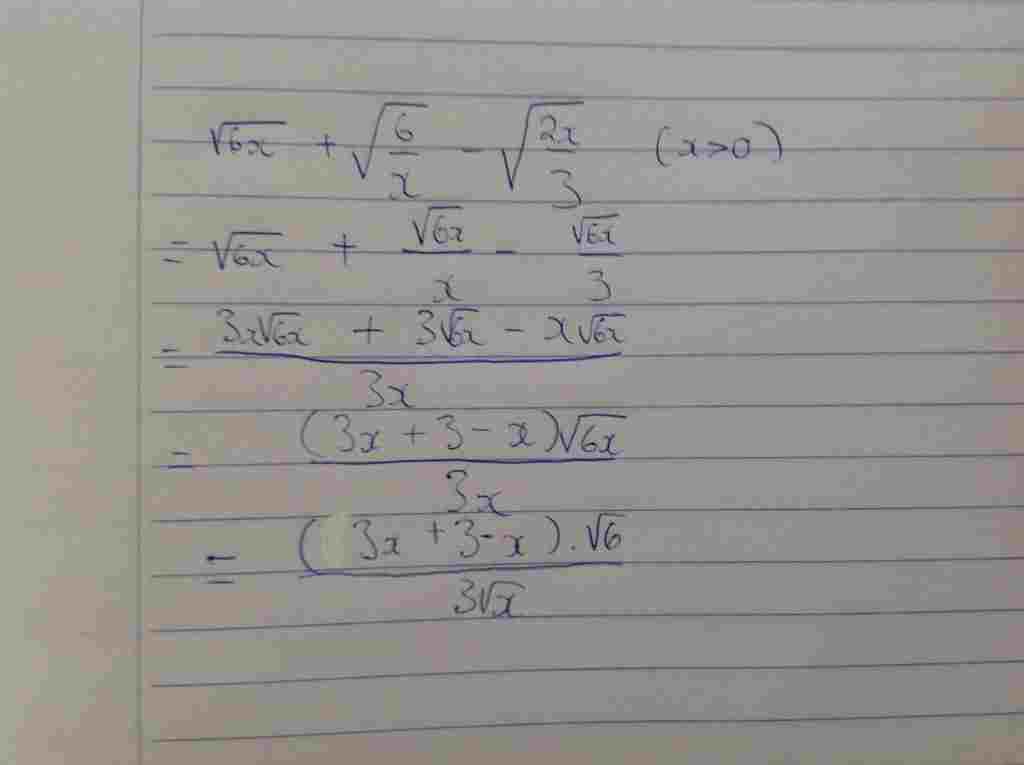 √6x + √(6/x) - √(2x/3) (x>0)
= √6x + √6x/x - √6x/3
= (3x√6x + 3√6x - x√6x)/3x
= (3x + 3 - x)√6x/3x
= (3x + 3 - x).√6/3√x